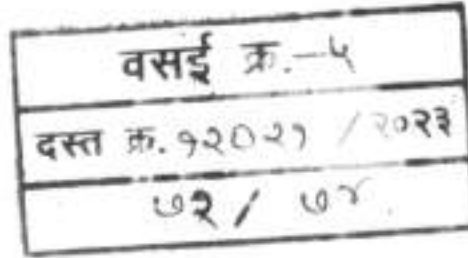 वसई क्र.-५
दस्त क्र. १२०२१ / २०२३
७२ / ७४